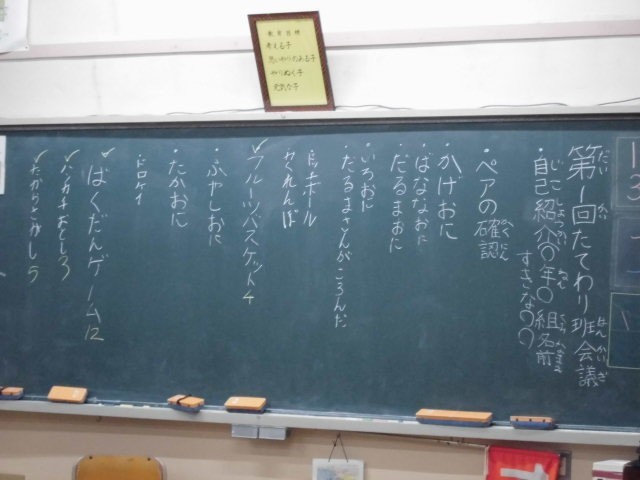 教育目標
考える子
思いやりのある子
やりぬく子
元気な子
第1回たてわり班会議
・自己紹介〇年〇組名前
すきな〇〇
・ペアの確認
・かげおに
・ばななおに
・だるまおに
・いろおに
・だるまさんがころんだ
・ドッチボール
かくれんぼ
✓フルーツバスケット4
・ふやしおに
・たかおに
ドロケイ
✓ばくだんゲーム12
✓ハンカチおとし3
✓たからさがし5